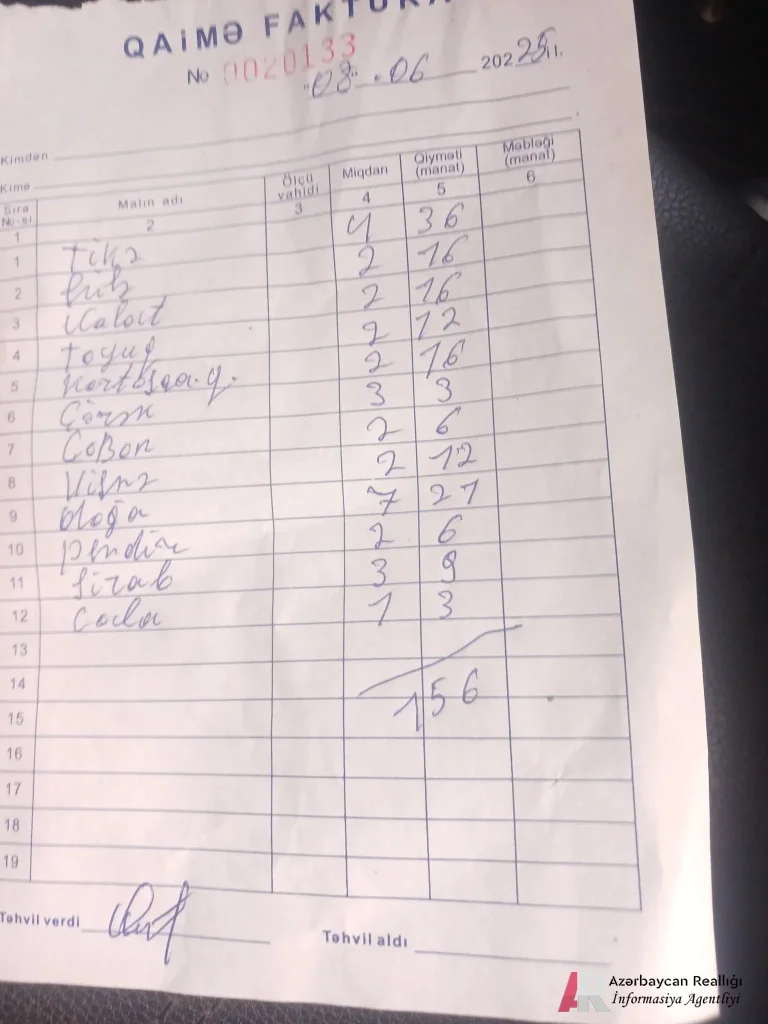 QAİMƏ FAKTURA
No 0020133
"08" . 06 202 25 il.
Kimdən
Kimə
Sıra No-si Malın adı Ölçü vahidi Miqdarı Qiyməti (manat) Məbləği (manat)
1 2 3 4 5 6
1 Tikə 4 36
2 2 16
3 2 16
4 toyuq 2 12
5 Kartoşqa.q. 2 16
6 Çörək 3 3
7 Çoban 2 6
8 Vişnə 2 12
9 7 21
10 pendir 2 6
11 Sirab 3 9
12 Cola 1 3
13
14
15 156
16
17
18
19
Təhvil verdi
Təhvil aldı
Azərbaycan Reallığı
İnformasiya Agentliyi